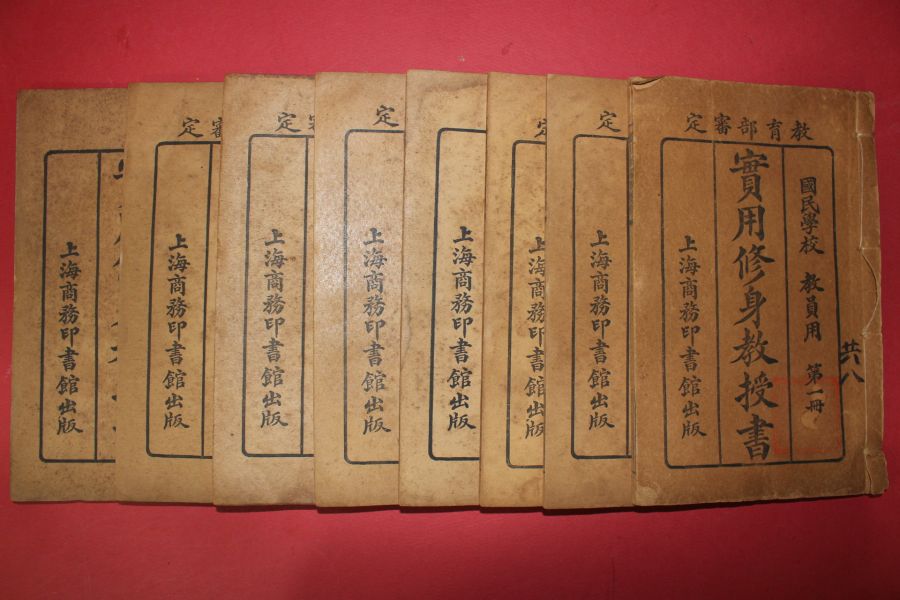 教育部審定
國民學校 教員用 第一冊
實用修身教授書
上海商務印書館出版
共八
定
上海商務印書館出版
定
上海商務印書館出版
上海商務印書館出版
定
上海商務印書館出版
定
上海商務印書館出版
審定
上海商務印書館出版
上海商務印書館出版